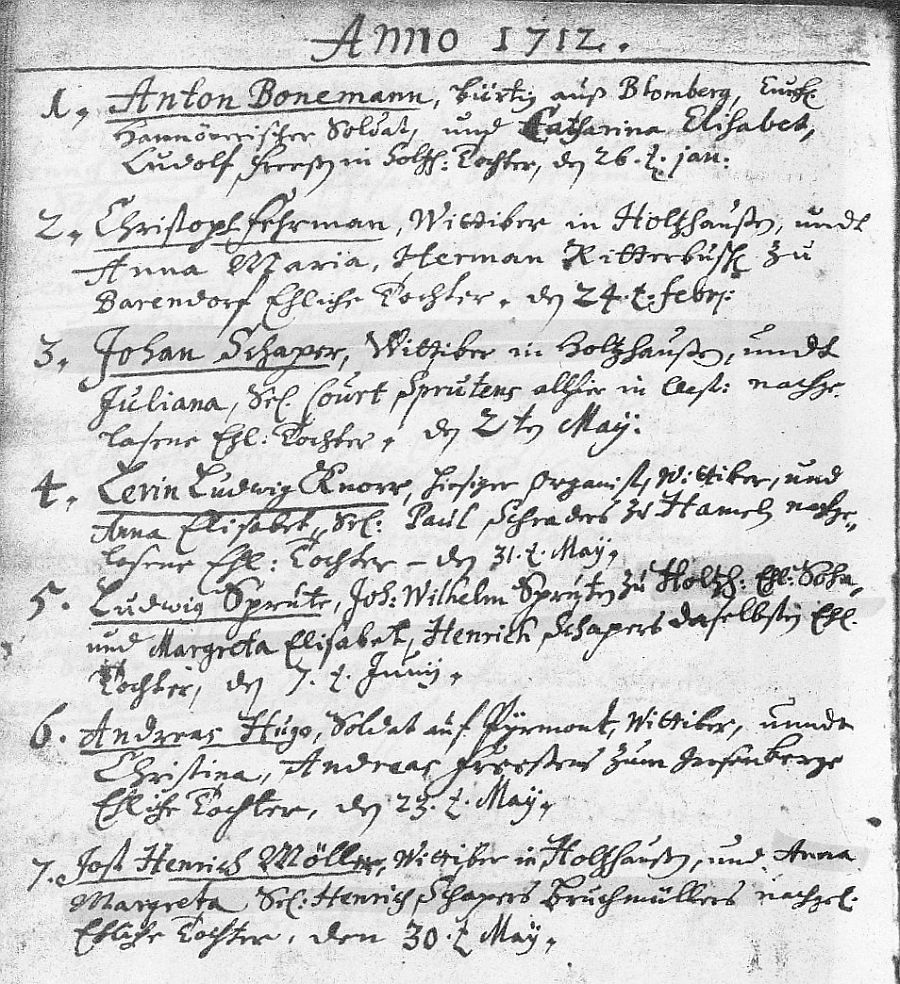 Anno 1712.
1. Anton Bonemann, bürtig auß Blomberg, Churfl.
Hannöverischer Soldat, und Catharina Elisabet,
Ludolf Freesen in Holtzh: Tochter, den 26. t. jan:
2. Christoph Fehrman, Wittiber in Holtzhaußen, undt
Anna Maria, Herman Ritterbusch zu
Barendorf Ehliche Tochter. den 24. t. febr:
3. Johan Schaper, Wittiber in Holtzhaußen, undt
Juliana, Sel. Court Spruten allhier in nachge-
laßene Ehl: Tochter, den 2ten May.
4. Levin Ludwig Knorr, hiesiger Organist, Wittiber, und
Anna Elisabet, Sel: Paul Schraders zu Hameln nachge-
laßene Ehl: Tochter - den 31. t. May,
5. Ludwig Sprute, Joh: Wilhelm Spruten zu Holtzh: Ehl: Sohn,
und Margreta Elisabet, Henrich Schapers daselbsten Ehl.
Tochter, den 7. t. Junij,
6. Andreas Hugo, Soldat auf Pyrmont, Wittiber, unndt
Christina, Andreas Freesens zum
Ehliche Tochter, den 23. t. May,
7. Jost Henrich Möller, Wittiber in Holtzhaußen, und Anna
Margreta Sel: Henrich Schapers Bruchmüllers nachgel.
Ehliche Tochter, den 30. t May,